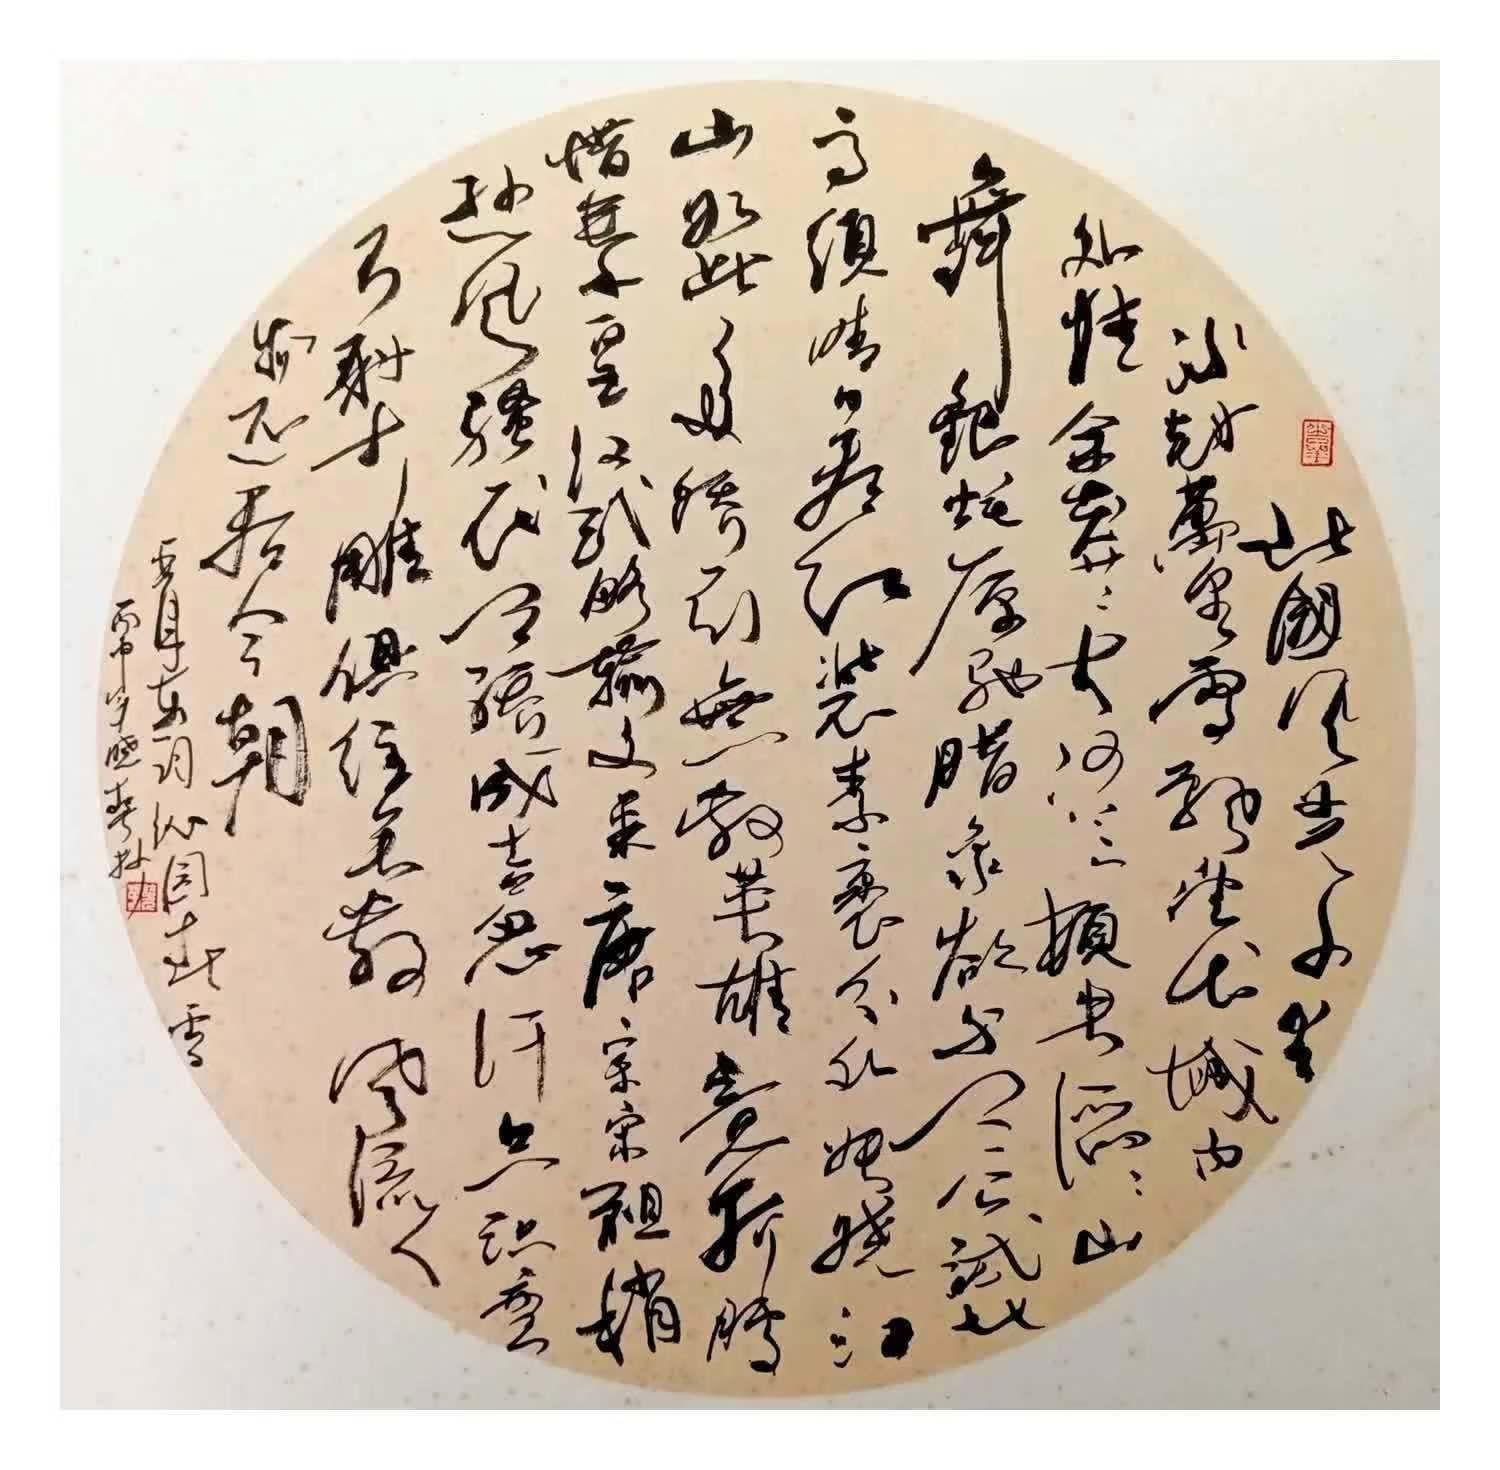 北國風光千里
冰封萬里雪飄望長城內
外惟余莽〻大河上下頓失滔〻山
舞銀蛇原馳腊象欲與天公試比
高須晴日看紅裝素裹分外妖嬈江
山如此多嬌引無數英雄竟折腰
惜秦皇漢武略輸文采唐宗宋祖稍
遜風騷一代天驕成吉思汗只識彎
弓射大雕俱往矣數風流人
物還看今朝
毛澤東詞沁園春雪
丙申年曉春